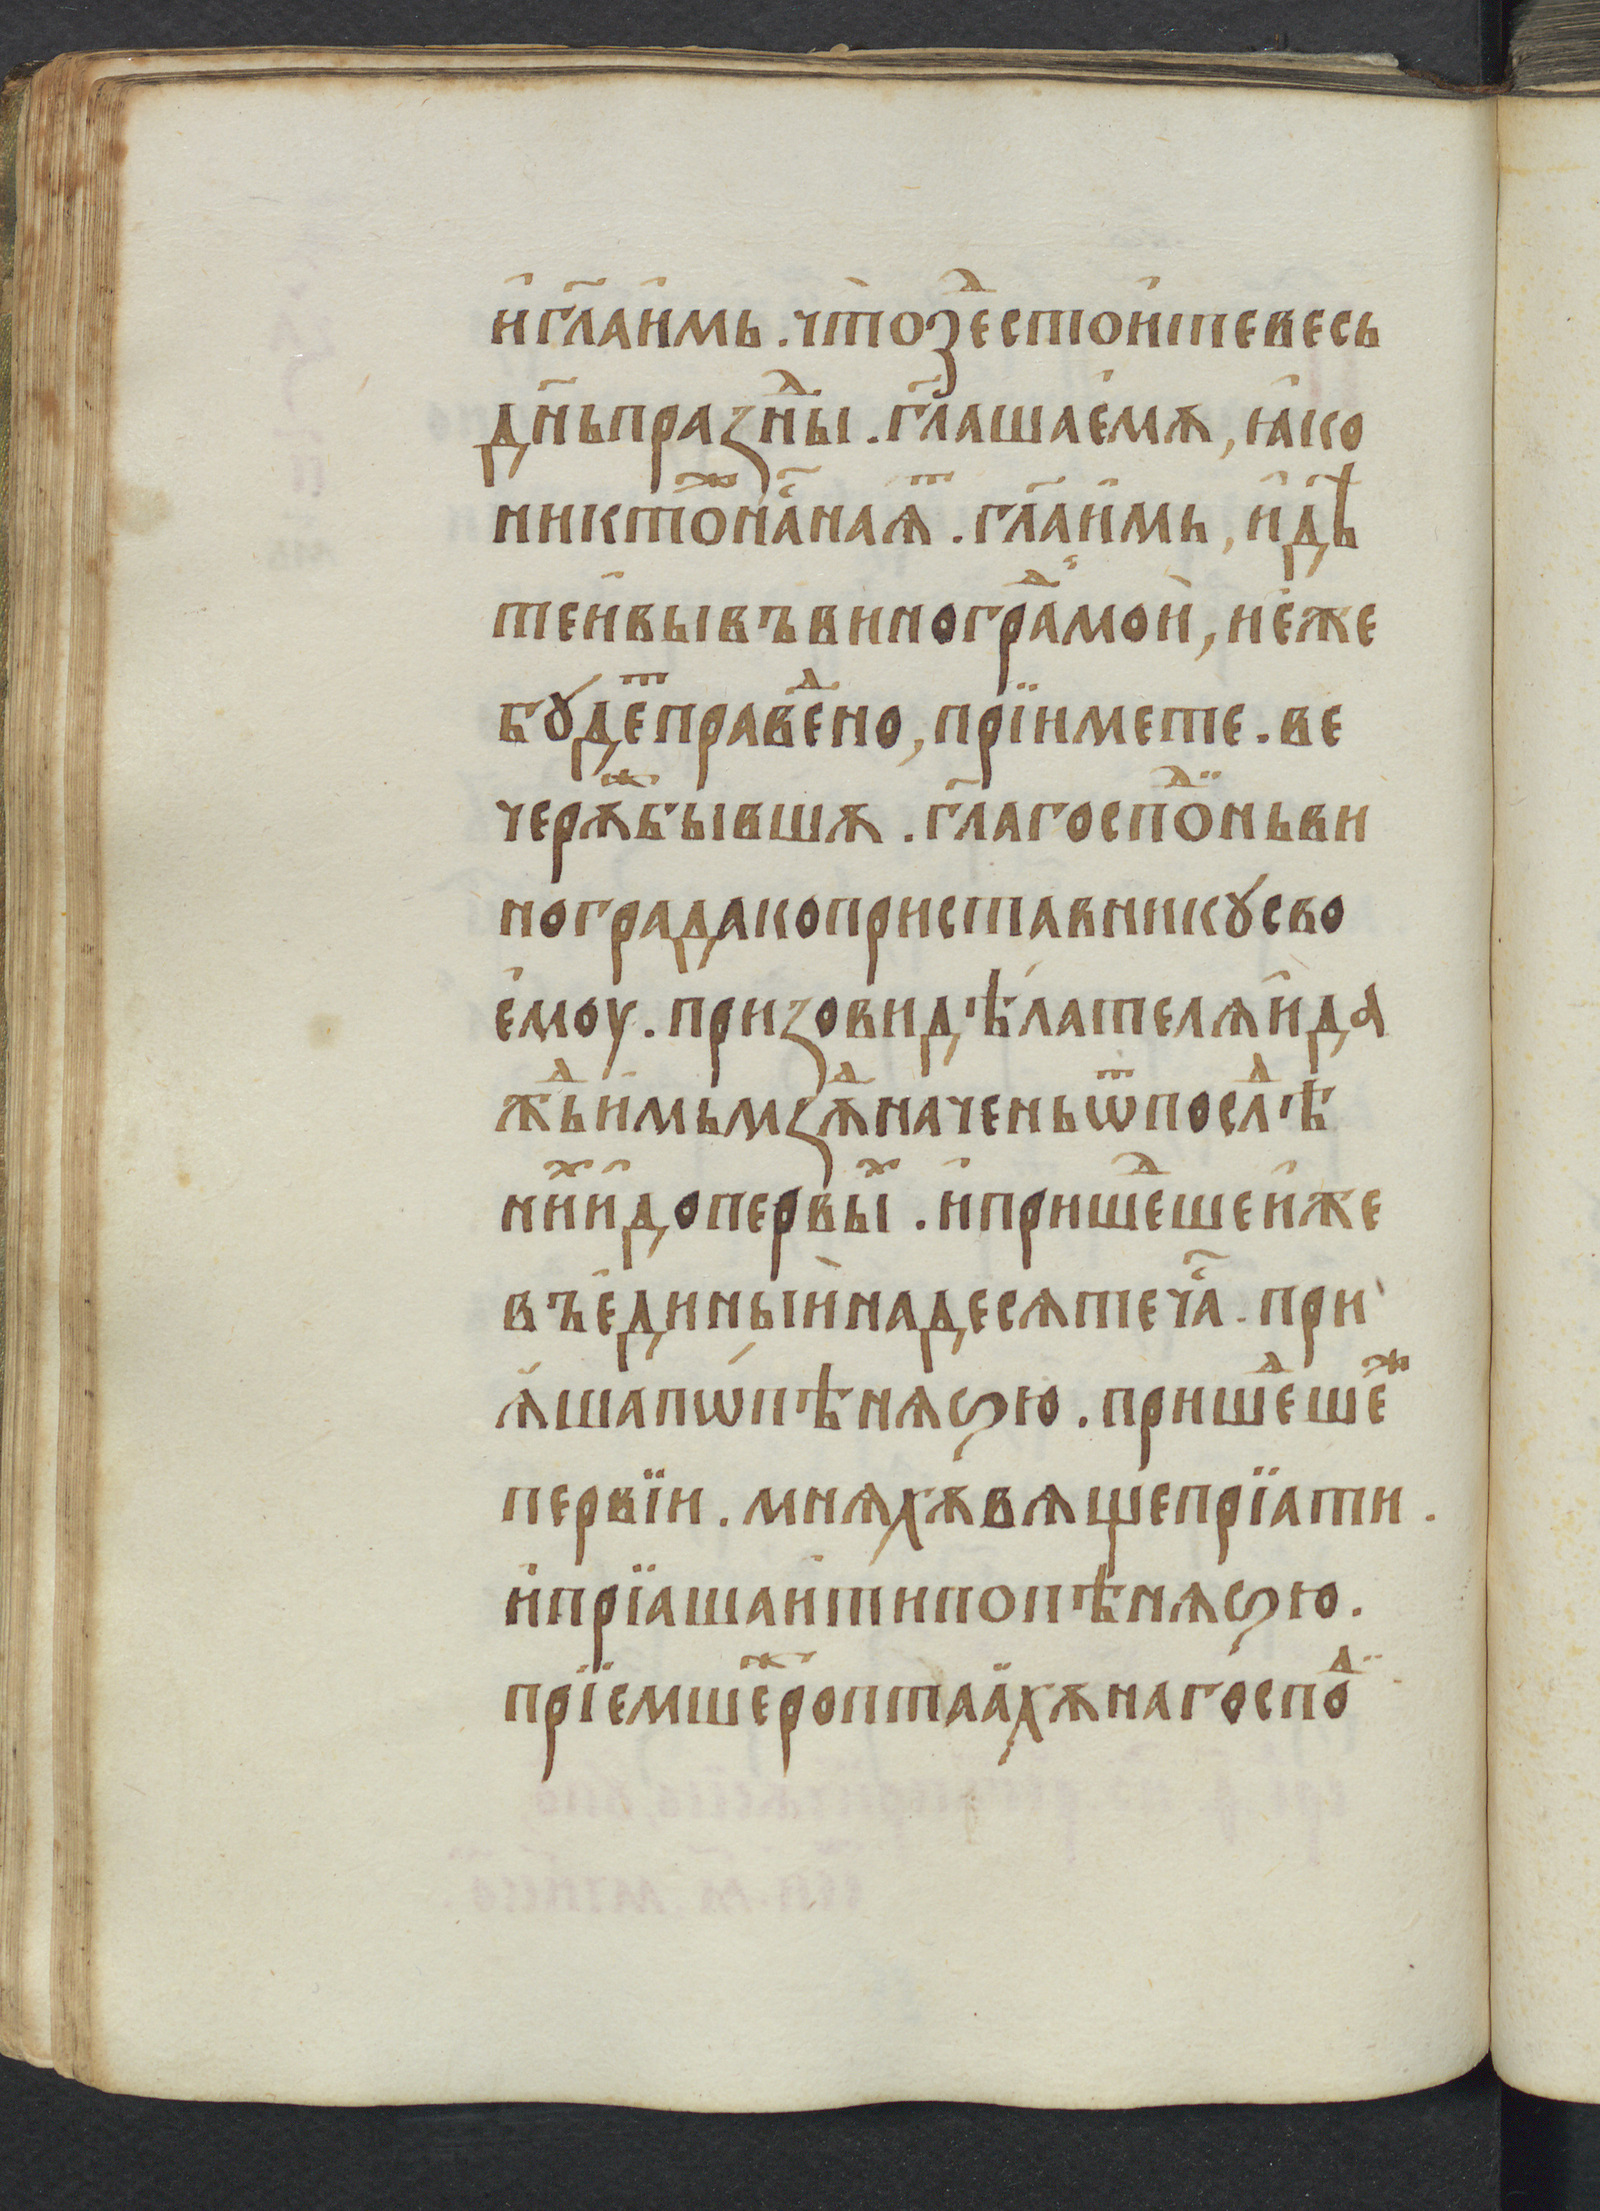 и҆ гл҃а и҆мь . что̀ зⷣе стои҆те весь
дн҃ь праз̾ⷣны . гл҃аша е҆мѫ , ꙗ҆ко
никтоⷤ на́с наѧⷮ . гл҃а и҆мь , и҆дѣ
те и҆ вы въ виногра́ⷣ мои̇̀ , и҆ е҆же
бꙋ́деⷮ правеⷣно , прїимете . ве
черѫⷤ бывшѫ . гл҃а господⷣїнь ви
нограда ко приставникꙋ сво
е҆моу . призови дѣ́лателѧ и҆ да
жⷣь и҆мь мзⷣѫ начень ѿ послѣⷣ
ниⷯи҆ до первыⷯ . и҆ пришеⷣше и҆же
въ е҆диныи̇̀ надесѧте ча́с . при
ѧ҆ша пѡ́ пѣнѧѕю . пришеⷣшеⷤ
первїи . мнѧхѫ вѧщше прїати .
и҆ прїаша и҆ ти̇̀ по пѣнѧѕю .
прїемшеⷤ роптаахѫ на госпоⷣ